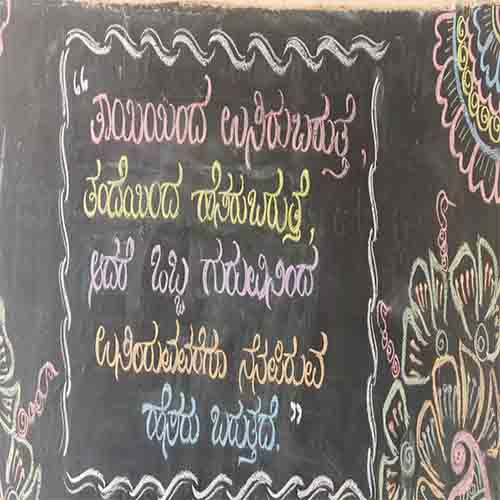 “ ತಾಯಿಯಿಂದ ಉಸಿರುಬರುತ್ತೆ,
ತಂದೆಯಿಂದ ಹೆಸರುಬರುತ್ತೆ,
ಆದರೆ ಒಬ್ಬ ಗುರುವಿನಿಂದ
ಉಸಿರಿರುವವರೆಗೂ ನೆನಪಿರುವ
ಹೆಸರು ಬರುತ್ತದೆ. ”